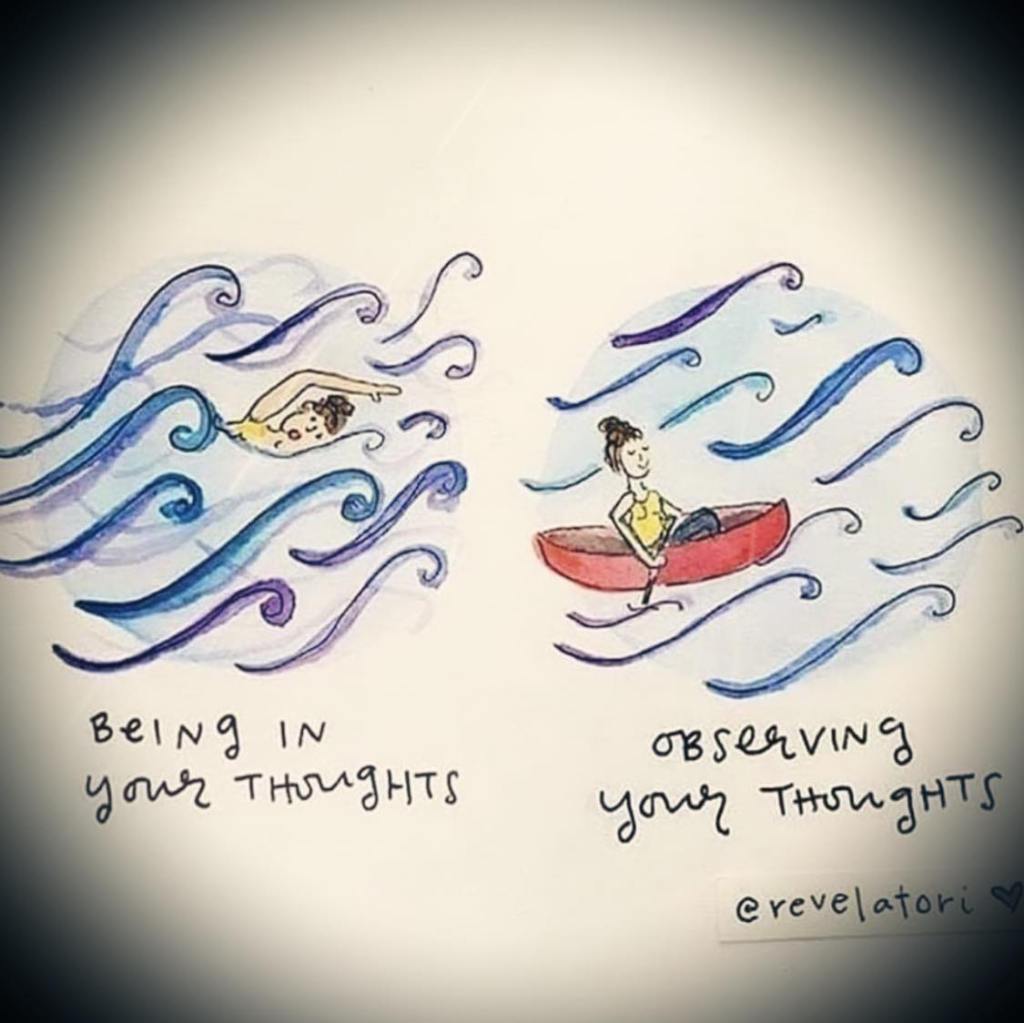 BEING IN
YOUR THOUGHTS
OBSERVING
YOUR THOUGHTS
@revelatori